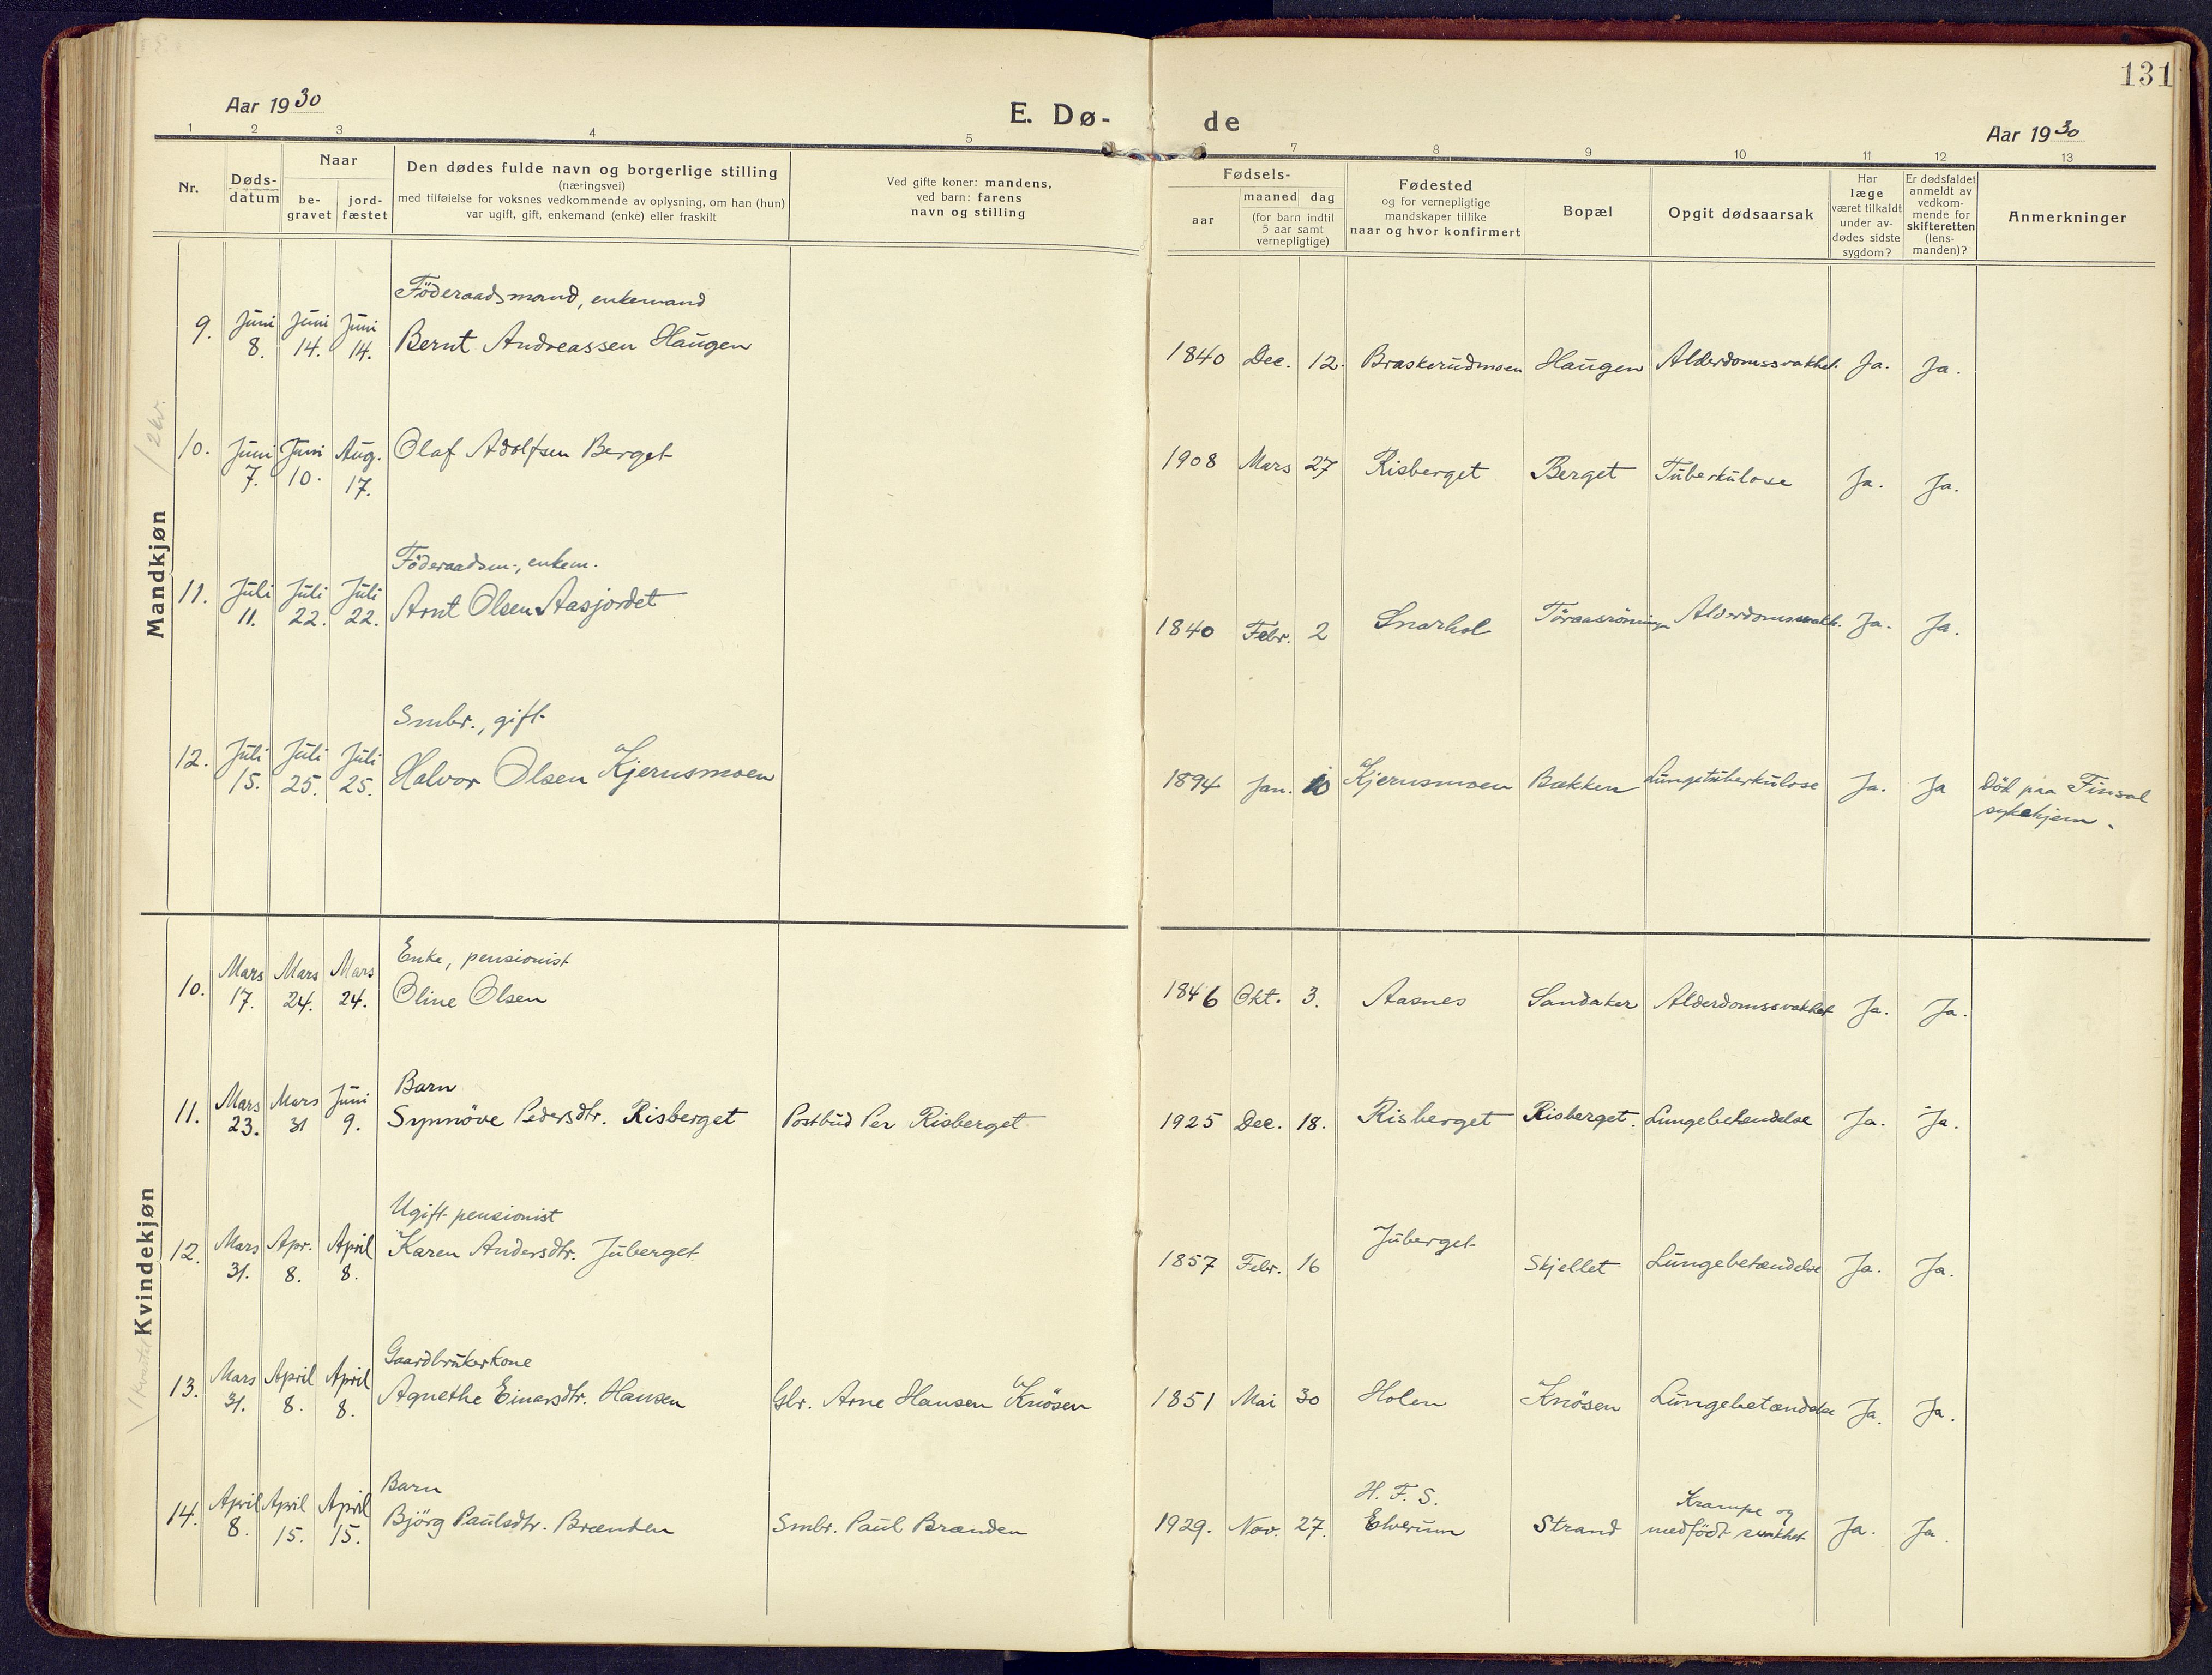 131
Aar 1930
E. Dø-
de
Aar 1930
1 2 3 4 5 6 7 8 9 10 11 12 13
Nr.
Døds-
datum
Naar
be-
gravet
jord-
fæstet
Den dødes fulde navn og borgerlige stilling
(næringsvei)
med tilføielse for voksnes vedkommende av oplysning, om han (hun)
var ugift, gift, enkemand (enke) eller fraskilt
Ved gifte koner: mandens,
ved barn: farens
navn og stilling
Fødsels-
aar
maaned dag
(for barn indtil
5 aar samt
vernepligtige)
Fødested
og for vernepligtige
mandskaper tillike
naar og hvor konfirmert
Bopæl
Opgit dødsaarsak
Har
læge
været tilkaldt
under av-
dødes sidste
sygdom?
Er dødsfaldet
anmeldt av
vedkom-
mende for
skifteretten
(lens-
manden)?
Anmerkninger
Mandkjøn
2 kv.
Föderaadsmand, enkemand
9. Juni 8. Juni 14. Juni 14. Bernt Andreassen Haugen 1840 Dec. 12. Braskerudmoen Haugen Alderdomssvakhet. Ja. Ja.
10. Juni 7. Juni 10. Aug. 17. Olaf Adolfsen Berget 1908 Mars 27 Risberget Berget Tuberkulose Ja. Ja.
Föderaadsm., enkem.
11. Juli 11. Juli 22. Juli 22. Arnt Olsen Aasjordet 1840 Febr. 2 Snarhol Alderdomssvakh. Ja. Ja.
Smbr., gift
12. Juli 15. Juli 25. Juli 25. Halvor Olsen Kjernsmoen 1894 Jan. 10 Kjernsmoen Bækken Lungetuberkulose Ja. Ja Död paa Finsal
sykehjem.
Kvindekjøn
1 kvartal
Enke, pensionist
10. Mars 17. Mars 24. Mars 24. Oline Olsen 1846 Okt. 3. Aasnes Sandaker Alderdomssvakhet Ja. Ja.
Barn
11. Mars 23. Mars 31 Juni 9. Synnöve Pedersdtr. Risberget Postbud Per Risberget 1925 Dec. 18. Risberget Risberget. Lungebetendelse Ja. Ja.
Ugift pensionist
12. Mars 31. Apr. 8. April 8. Karen Andersdtr. Juberget 1857 Febr. 16 Juberget Skjellet Lungebetændelse Ja. Ja.
Gaardbrukerkone
13. Mars 31. April 8. April 8. Agnethe Einarsdtr. Hansen Gbr. Arne Hansen Knösen 1851 Mai 30 Holen Knösen Lungebetændelse Ja. Ja.
Barn
14. April 8. April 15. April 15. Björg Paulsdtr. Brænden Smbr. Paul Brænden 1929. Nov. 27. H. F. S.
Elverum Strand Krampe og
medfödt svakhet Ja. Ja.